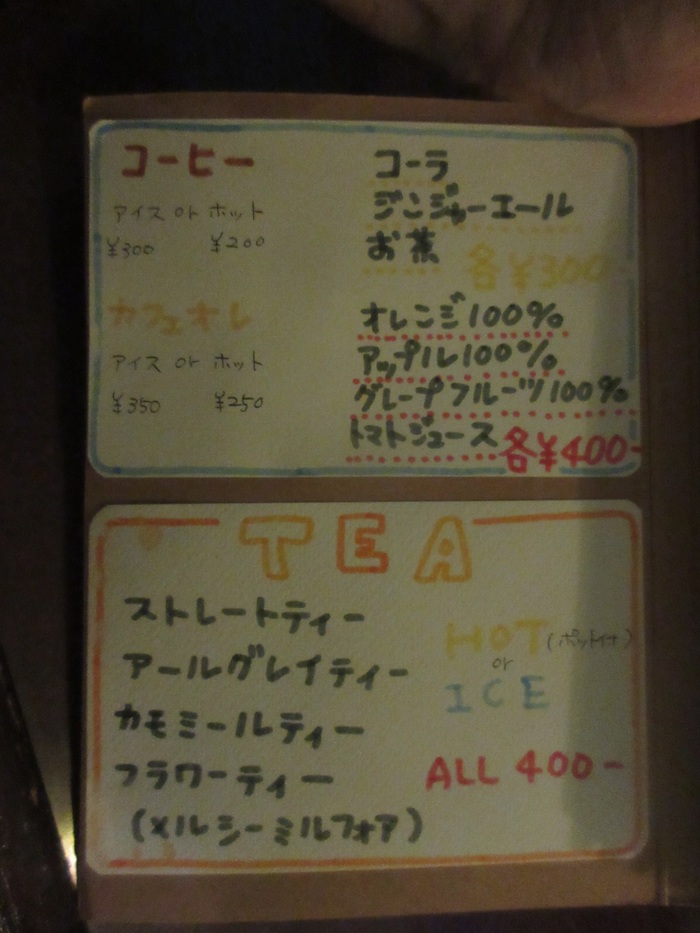 コーヒー
アイス or ホット
¥300 ¥200
カフェオレ
アイス or ホット
¥350 ¥250
コーラ
ジンジャーエール
お茶
各¥300-
オレンジ100%
アップル100%
グレープフルーツ100%
トマトジュース
各¥400-
TEA
ストレートティー
アールグレイティー
カモミールティー
フラワーティー
(メルシーミルフォア)
HOT(ポット付)
or
ICE
ALL 400-